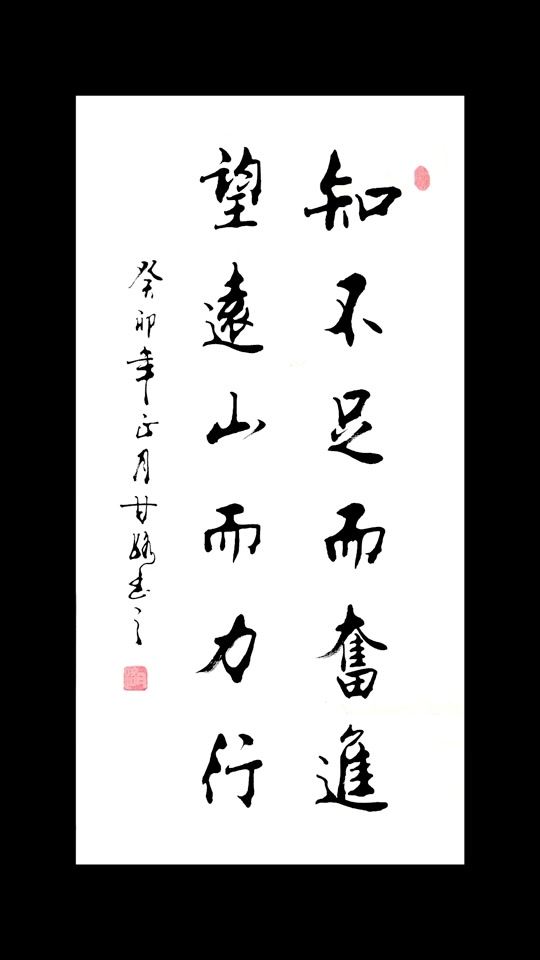 知不足而奮進
望遠山而力行
癸卯年正月甘駱書之